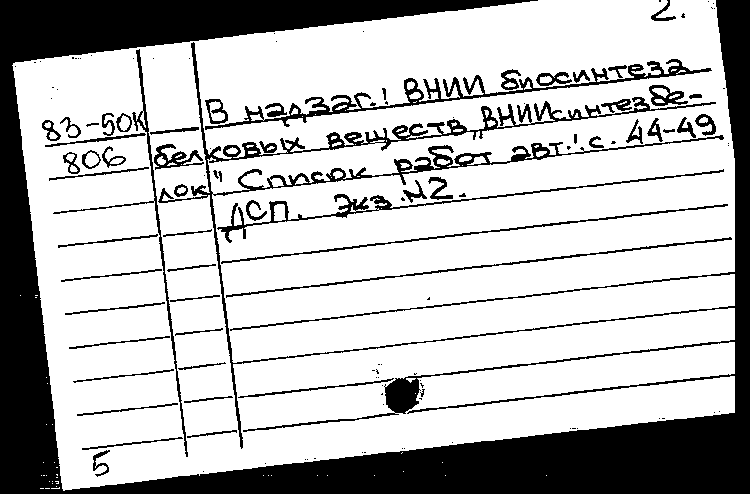 2.
В надзаг.: ВНИИ биосинтеза
83-50К белковых веществ „ВНИИсинтезбе-
806 лок" Список работ авт.: с. 44-49
ДСП. Экз. №2.
5